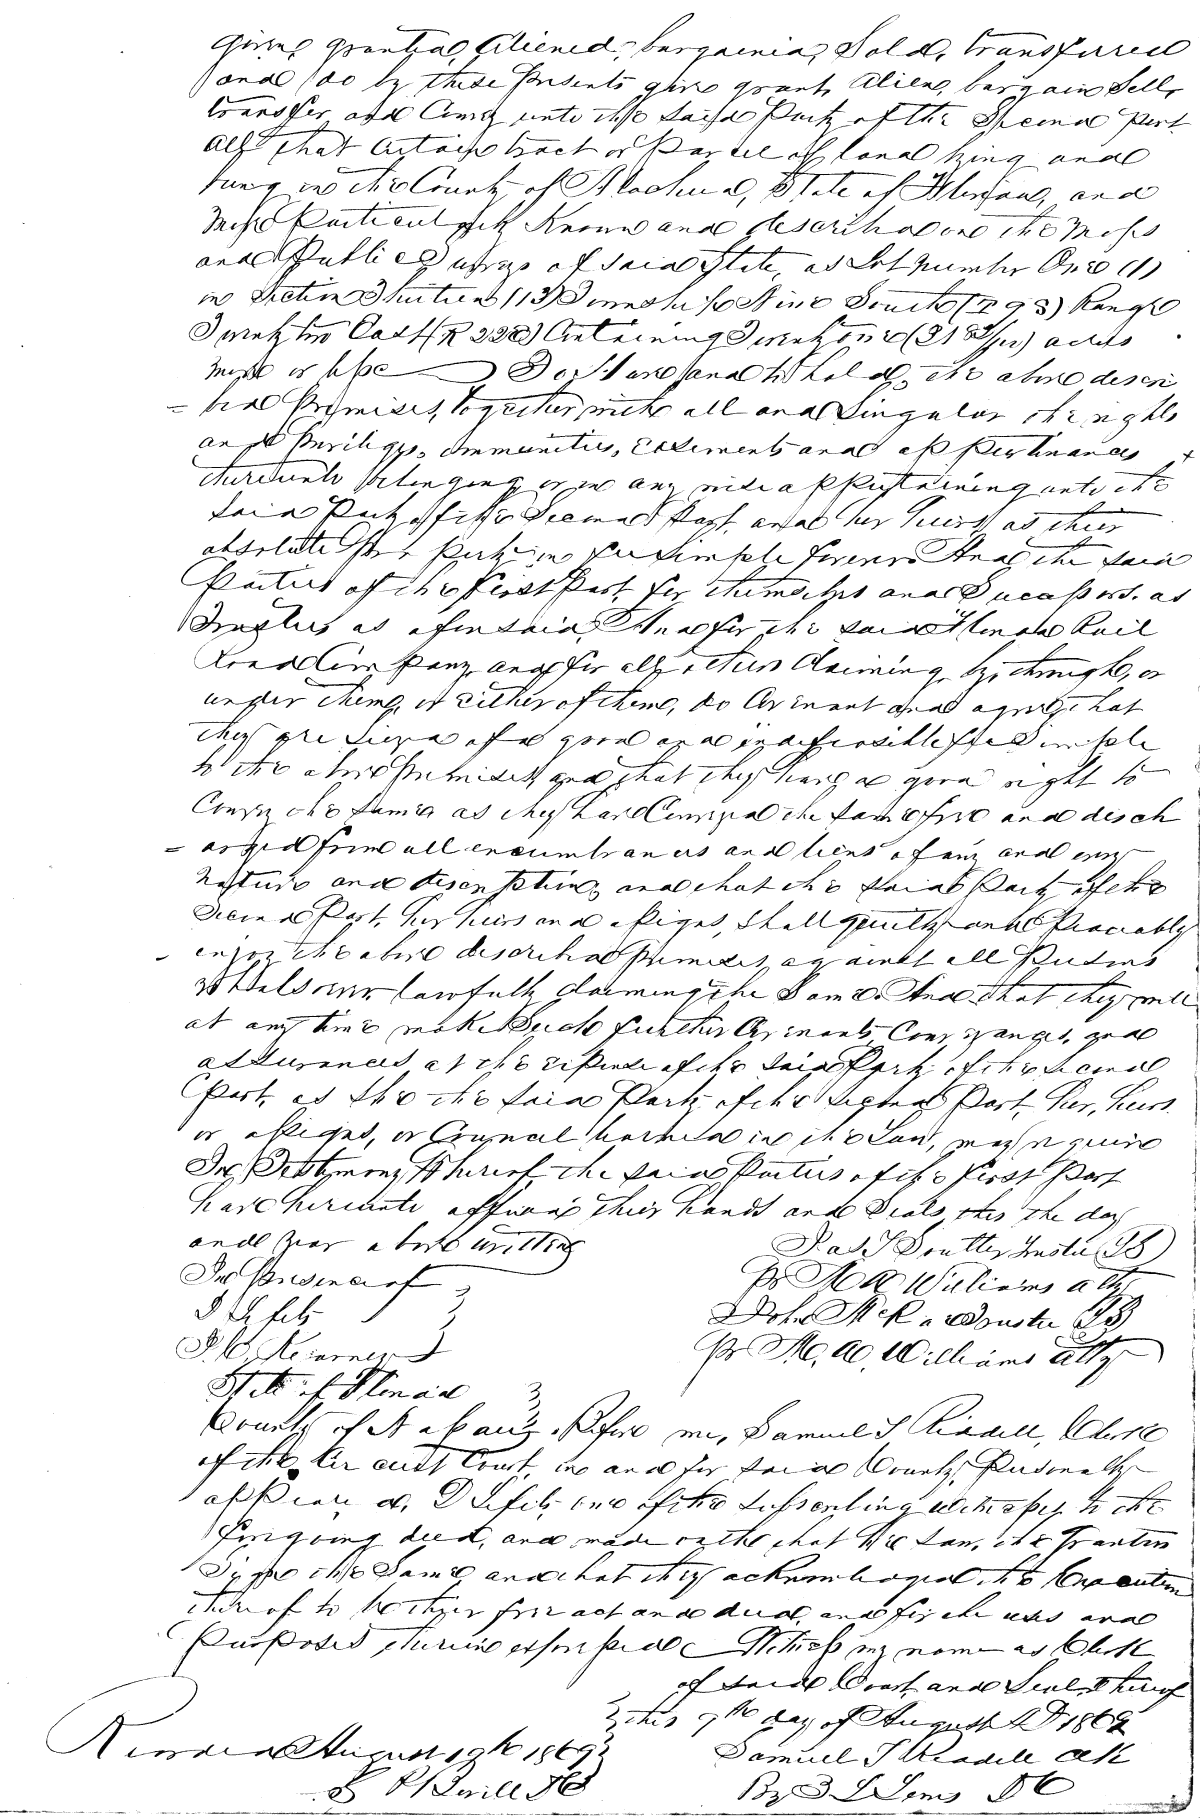 given, granted, Aliened, bargained, Sold, transferred
and do by these Presents give grant, Alien, bargain Sell,
transfer and Convey unto the Said Party of the Second Part
All that certain tract or Parcel of land lying and
being in the County of Alachua, State of Florida, and
More Particularly Known and described on the Maps
and Public Surveys of Said State, as Lot number One (1)
in Section Thirteen (13) Township Nine South (T 9 S) Range
Twenty two East (R 22 E) Containing Twenty one (21 /100) acres
more or less To Have and to hold, the above descri
= bed Premises, together with all and Singular the rights
and Privileges, immunities, Easements and appertinances
thereunto belonging or in any wise appertaining unto the
Said Party of the Second Part, and her heirs, as their
absolute Property in fee Simple forever And the Said
Parties of the First Part for themselves and Successors, as
Trustees as aforesaid, And for the Said Florida Rail
Road Company, and for all others Claiming, by, through, or
under them, or either of them, do Covenant and agree, that
they are Seized of a good and indefeasible fee Simple
to the above Premises, and that they have a good right to
Convey the Same as they have Conveyed the Same free and disch
= arged from all encumbrances and liens of any and every
Nature and description, and that the Said Party of the
Second Part, her heirs and assigns, Shall quietly and Peaceably
enjoy the above described Premises, against all Persons
Whatsoever, lawfully claiming the Same. And that they will
at any time make Such further Covenants, Conveyances, and
assurances at the expense of the Said Party of the Second
Part, as She the Said Party of the Second Part, her, heirs
or assigns, or Council learned in the Law, may require
In Testimony Whereof, the Said Parties of the First Part
have hereunto affixed their hands and Seals, this the day
and year above written
Jas T Soutter Trustee
In Presence of
Pr M A Williams atty
John McRae Trustee
Pr M. A. Williams atty
State of Florida
County of Nassau Before me, Samuel T Riddell, Clerk
of the Circuit Court, in and for Said County, Personally
appeared, one of the Subscribing witnesses, to the
foregoing deed, and made oath that he saw, the Grantors
Sign the Same and that they acknowledged the Execution
thereof to be their free act and deed, and for the uses and
Purposes, therein expressed Witness my name as Clerk
of Said Court and Seal thereof
this 9th day of August AD 1869
Recorded August 19th 1869
Samuel T Riddell Clk